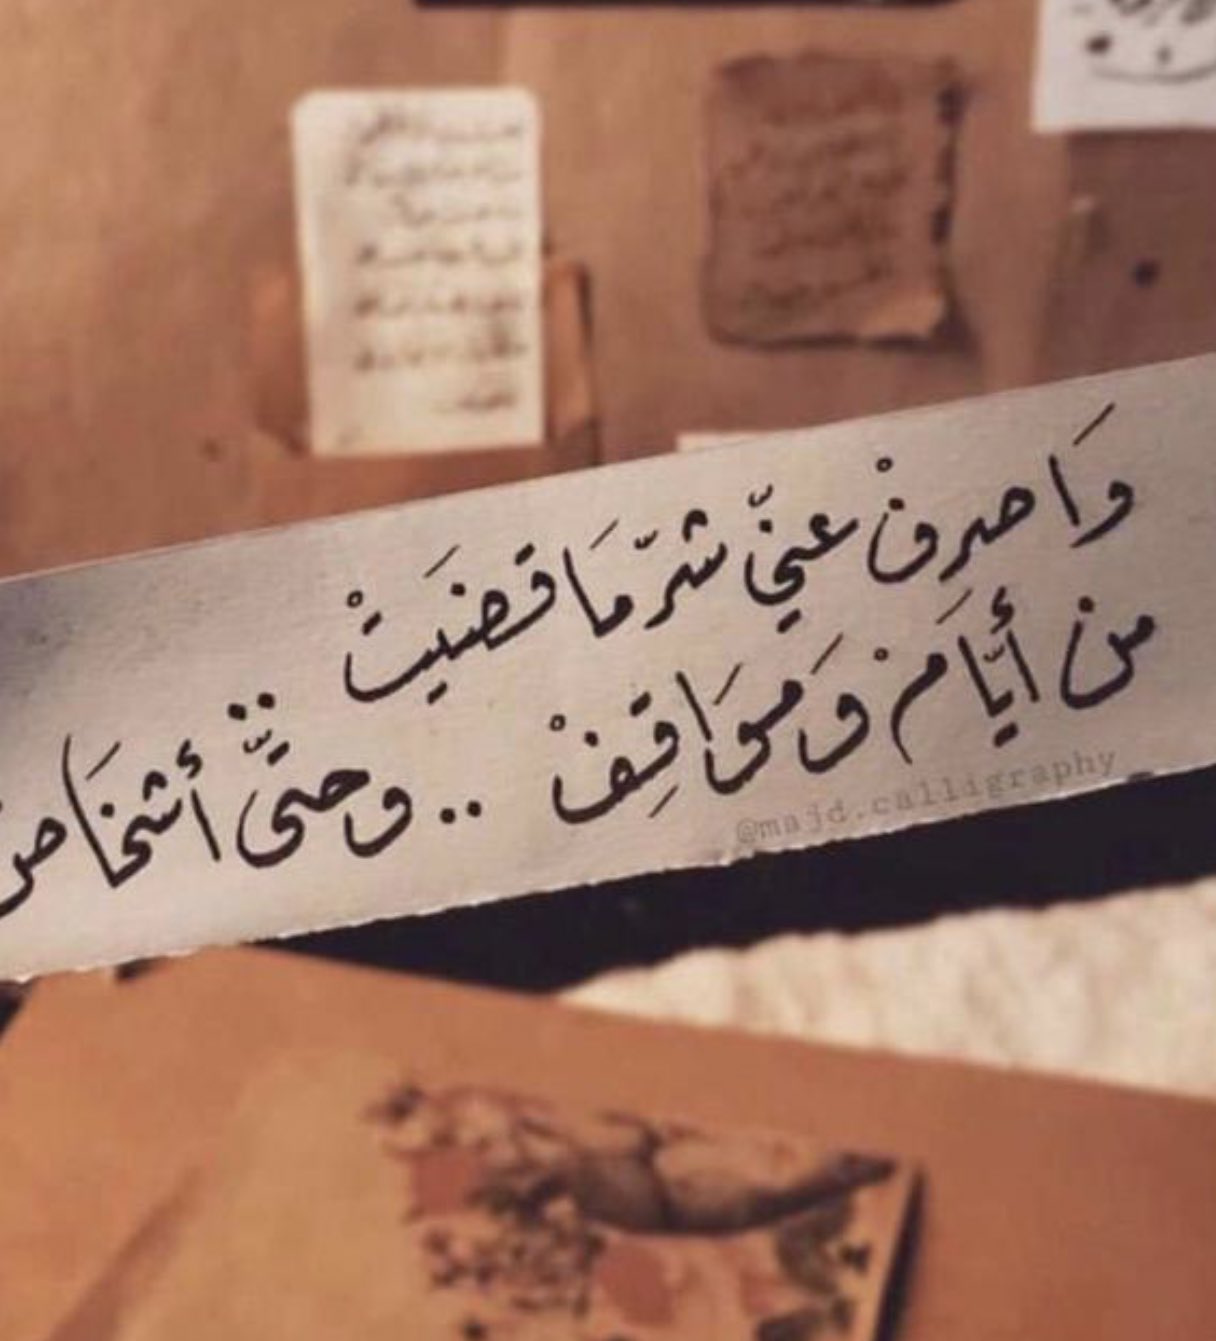 وَاصرفْ عنّي شرّ مَا قضَيتْ ..
من أيّامْ وَموَاقِفْ .. وحتّى أشخَاص
@majd.calligraphy